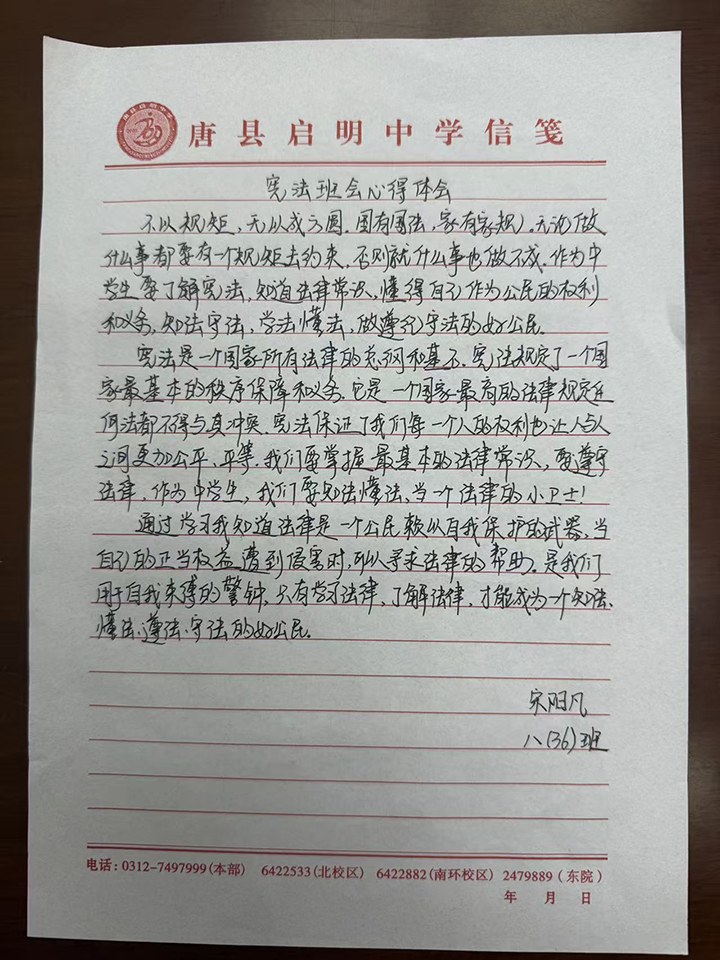 唐县启明中学信笺
宪法班会心得体会
不以规矩,无以成方圆.国有国法,家有家规).无论做
什么事都要有一个规矩去约束,否则就什么事也做不成.作为中
学生要了解宪法,知道法律常识,懂得自己作为公民的权利
和义务,知法守法,学法懂法,做遵纪守法的好公民.
宪法是一个国家所有法律的总纲和基石.宪法规定了一个国
家最基本的秩序保障和义务.它是一个国家最高的法律规定任
何法都不得与其冲突.宪法保证了我们每一个人的权利也让人与人
之间更加公平、平等.我们要掌握最基本的法律常识,要遵守
法律,作为中学生,我们要知法懂法、当一个法律的小卫士!
通过学习我知道法律是一个公民赖以自我保护的武器,当
自己的正当权益遭到侵害时,可以寻求法律的帮助.是我们
用于自我束缚的警钟.只有学习法律,了解法律,才能成为一个知法、
懂法、遵法、守法的好公民.
宋阳凡
八(36)班
电话:0312-7497999(本部) 6422533(北校区) 6422882(南环校区) 2479889(东院)
年 月 日